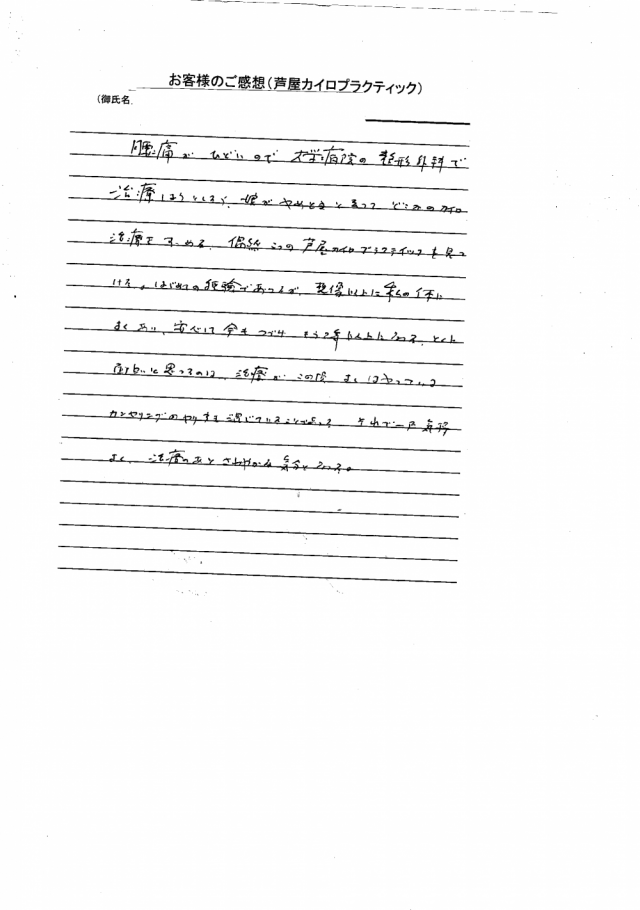 お客様のご感想(芦屋カイロプラクティック)
(御氏名
腰痛がひどいので 大学病院の整形外科で
治療しようとしたら、娘がやめときと言って カイロ
治療をすゝめる。偶然 この芦屋カイロプラクティックを見つ
ける。はじめての経験であったが、想像以上に私の体に
よくあい、安心して今もつづけ もう2年以上になる。とくに
面白いと思ってるのは、治療がこの際
カンセリングのやりとりも
よく、治療のあとさわやかな気分になる。